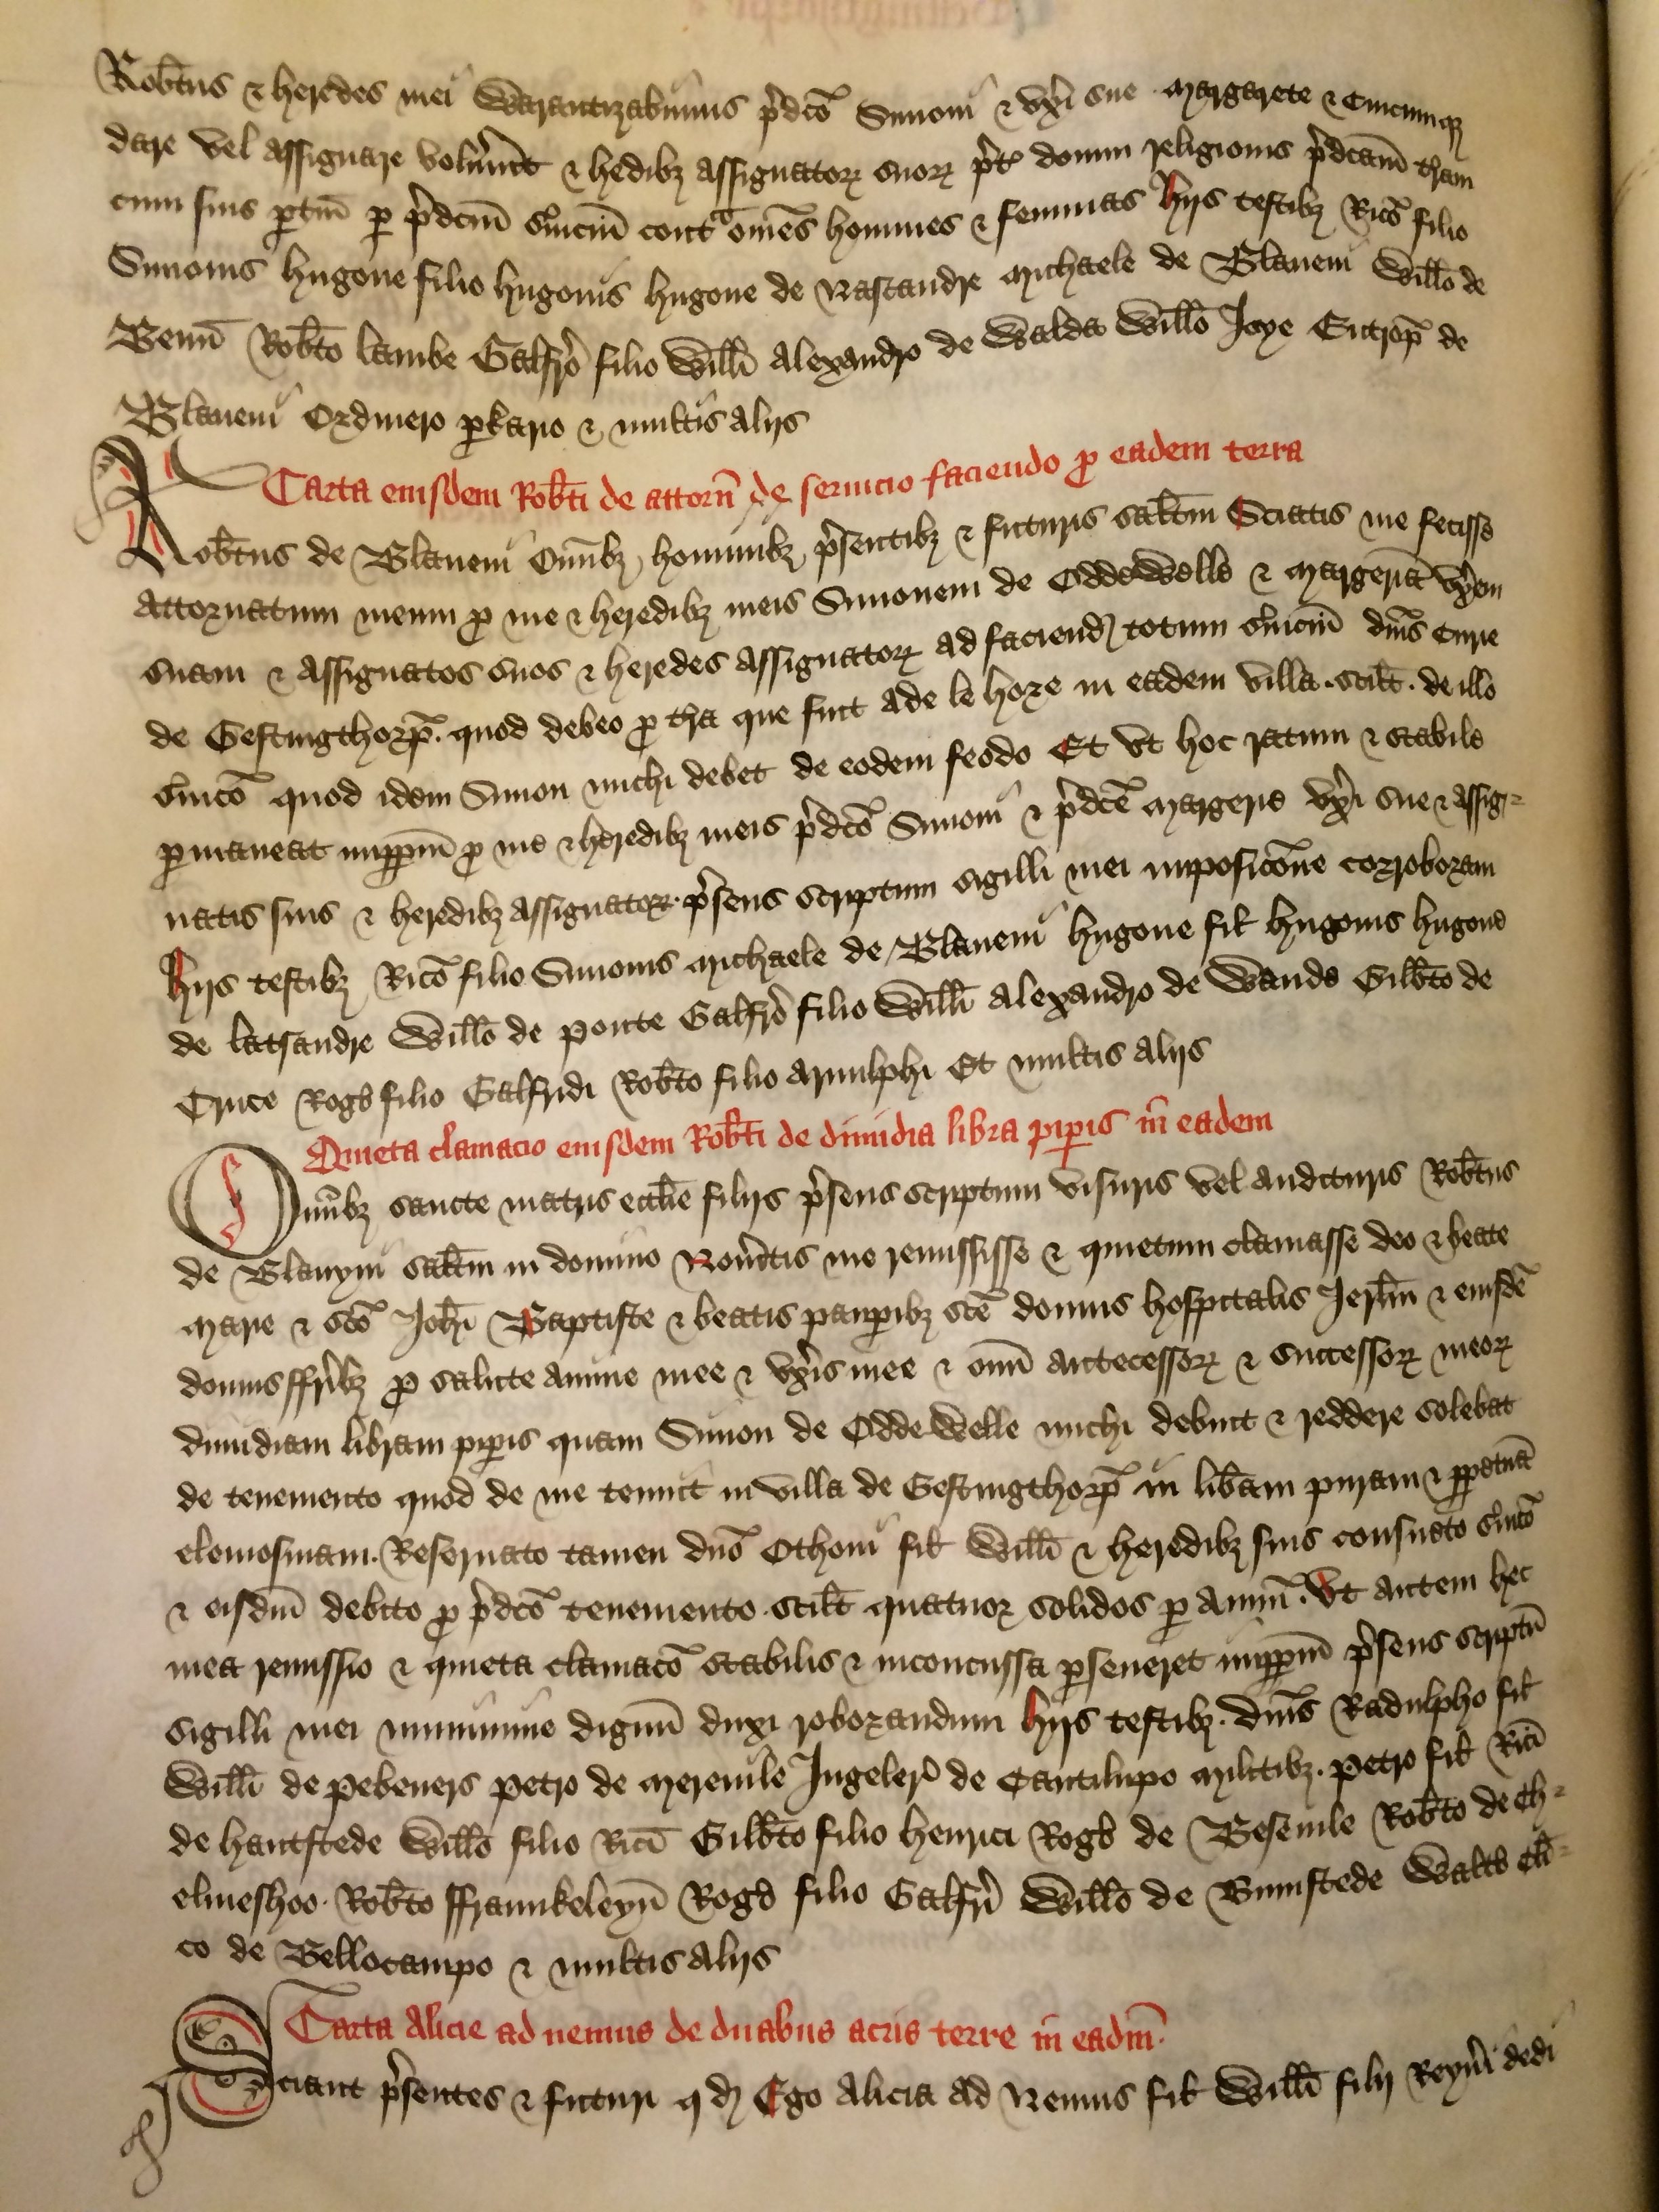 Robtus & heredes mei Warantizabimus pdco Simoni & vxi sue Margarete & Cuicumqz
dare vel assignare volunt & hedibz assignatoz suoz pt domu religionis pdcam tham
cum suis ptin p pdcm suiciu cont omes homines & feminas Hijs testibz Rico filio
Simonis hugone filio hugonis hugone de Nastandre Michaele de Blaueni Willo de
Benn Robto lambe Galfro filio Willi Alexandro de Walda Willo Joye Eutrop de
Blaueni Ordmero pkario & multis alijs
Carta eiusdem Robti de attorn de seruicio faciendo p eadem terra
Robtus de Blaueni Omibz hominibz psentibz & futuris saltm Sciatis me fecisse
Attornatum meum p me & heredibz meis Simonem de Oddewelle & Margeria vxem
suam & assignatos suos & heredes assignatoz ad faciend totum suiciu dnis Curie
de Gestingthorp. quod debeo p tha que fuit Ade le hoze in eadem villa. scilt. de illo
suico quod idem Simon michi debet de eodem feodo Et vt hoc ratum & stabile
pmaneat imppm p me & heredibz meis pdco Simoni & pdce Margerie vxi sue & assig-
natis suis & heredibz assignatoz. psens scriptum sigilli mei imposicone corroboram
Hijs testibz Rico filio Simonis Michaele de Blaueni hugone fil hugonis hugone
de latsandre Willo de ponte Galfro filio Willi Alexandro de Wande Gilbto de
Cruce Rogo filio Galfridi Robto filio Arnulphi Et multis alijs
Quieta clamacio eiusdem Robti de dimidia libra pipis in eadem
Omibz sancte matris ecclie filijs psens scriptum visuris vel audituris Robtus
de Blauyni saltm in domino Nouitis me remississe & quietum clamasse deo & beate
Marie & sco Johi Baptiste & beatis paupibz sce domus hospitalis Jerlm & eiusde
domus ffribz p salute anime mee & vxis mee & omi antecessoz & successoz meoz
dimidiam libram pipis quam Simon de Oddewelle michi debuit & reddere solebat
de tenemento quod de me tenuit in villa de Gestingthorp in libam puram & ppetua
elemosinam. Reseruato tamen dno Othoni fil Willi & heredibz suis consueto suico
& eisdm debito p pdco tenemento. scilt quatuor solidos p annu. Vt autem hec
mea remissio & quieta clamaco stabilis & inconcussa pseueret imppm psens scriptu
sigilli mei munimine dignu duxi roborandum Hijs testibz. dnis Radulpho fil
Willi de pebeners petro de Mereuile Ingeler de Cantilupo Militibz. petro fil Rici
de hautstede Willo filio Rici Gilbto filio henrici Rogo de Beseuile Robto de Ch-
elmeshoo. Robto ffraunkeleyn Rogo filio Galfri Willo de Bumstede Walto cli-
co de Bellocampo & multis alijs
Carta Alicie ad nemus de duabus acris terre in eadm.
Sciant psentes & futuri qd Ego Alicia ad Nemus fil Willi filij Reyni dedi